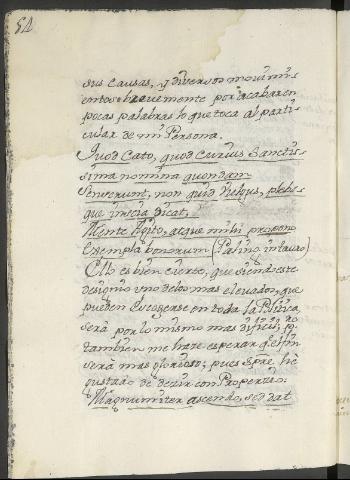 54
sus causas, y diversos movimi-
entos brevemente por acabar en
pocas palabras lo que toca al parti-
cular de mi Persona.
Quod Cato, quod Curius Sanctis-
sima nomina quondam
Senserunt, non quid vulgus, plebs-
que inscia dicat,
Mente Agito, atque mihi propono
Exempla bonorum (Paling. in tauro)
Ello es bien cierto, que siendo este
designio uno de los mas elevados, que
pueden Escogerse en toda la Politica,
será por lo mismo mas dificil;
tambien me haze esperar q̃ el fin
será mas glorioso; pues Spre. hé
gustado de dezir con Propercio.
Magnum iter ascendo, sed dat